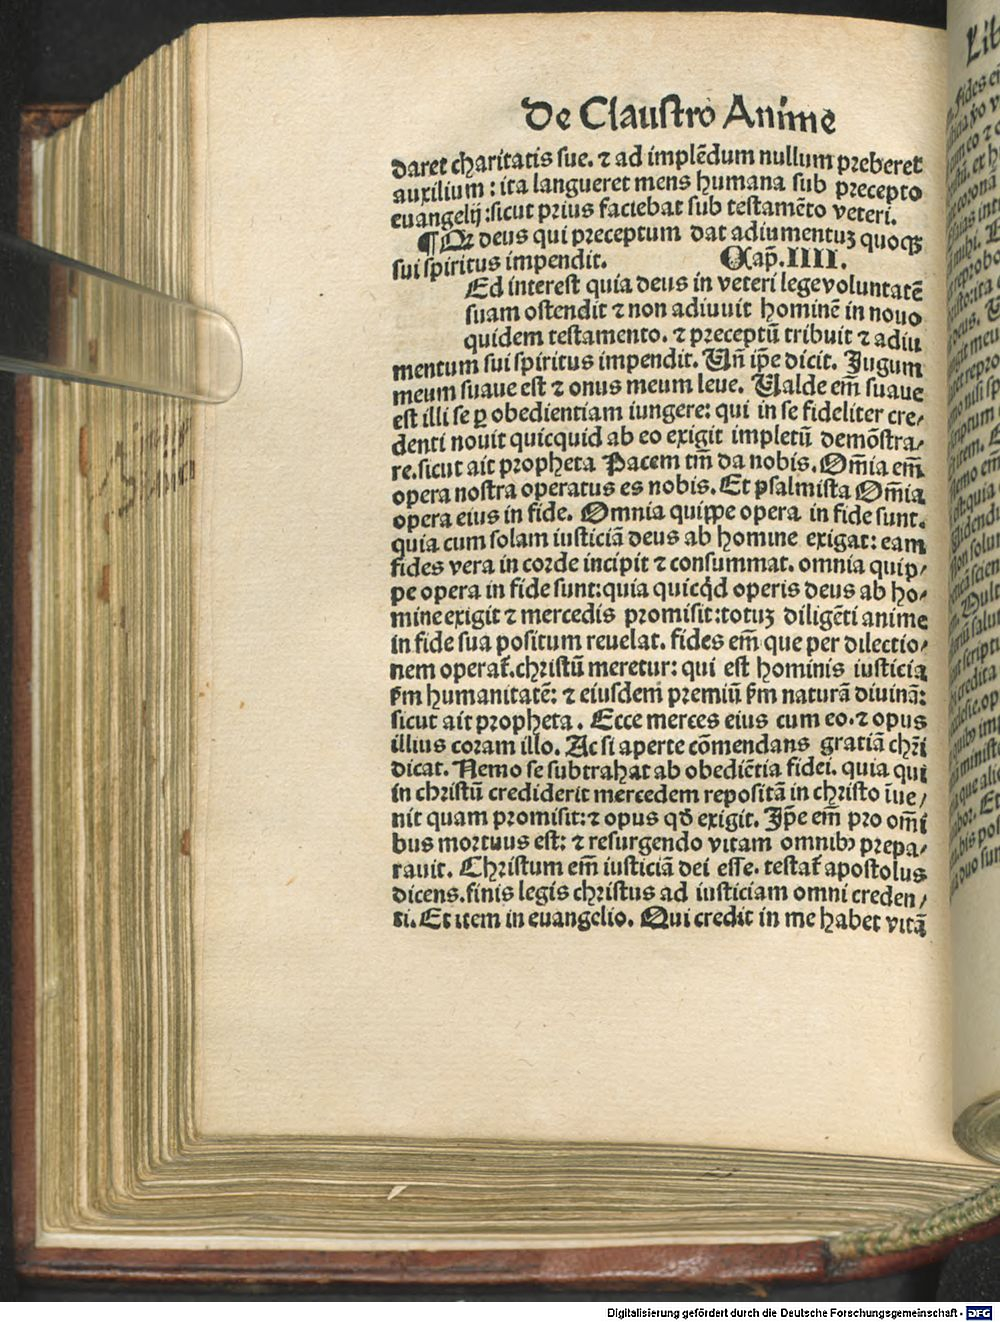 De Claustro Anime
daret charitatis sue. ⁊ ad implēdum nullum preberet
auxilium : ita langueret mens humana sub precepto
euangelij :sicut prius faciebat sub testamēto veteri.
¶ Qꝛ deus qui preceptum dat adiumentuꝫ quoqꝫ
sui spiritus impendit. Cap̄.IIII.
Ed interest quia deus in veteri lege voluntatē
suam ostendit ⁊ non adiuuit hominē in nouo
quidem testamento. ⁊ preceptū tribuit ⁊ adiu
mentum sui spiritus impendit. Vn̄ ip̄e dicit. Jugum
meum suaue est ⁊ onus meum leue. Valde em̄ suaue
est illi se ꝑ obedientiam iungere: qui in se fideliter cre⸗
denti nouit quicquid ab eo exigit impletū demōstra⸗
re.sicut ait propheta Pacem tm̄ da nobis. Om̄ia em̄
opera nostra operatus es nobis. Et psalmista Om̄ia
opera eius in fide. Omnia quippe opera in fide sunt.
quia cum solam iusticiā deus ab homine exigat: eam
fides vera in corde incipit ⁊ consummat. omnia quip⸗
pe opera in fide sunt:quia quicq̇d operis deus ab ho⸗
mine exigit ⁊ mercedis promisit:totuꝫ diligēti anime
in fide sua positum reuelat. fides em̄ que per dilectio⸗
nem operat̄.christū meretur: qui est hominis iusticia
ẜm humanitatē: ⁊ eiusdem premiū ẜm naturā diuinā:
sicut ait propheta. Ecce merces eius cum eo.⁊ opus
illius coram illo. Ac si aperte cōmendans gratiā chr̄i
dicat. Nemo se subtrahat ab obediētia fidei. quia qui
in christū crediderit mercedem repositā in christo īue⸗
nit quam promisit:⁊ opus qd̄ exigit. Ip̄e em̄ pro om̄i
bus mortuus est: ⁊ resurgendo vitam omnibꝰ prepa⸗
rauit. Christum em̄ iusticiā dei esse. testat̄ apostolus
dicens.finis legis christus ad iusticiam omni creden⸗
ti. Et item in euangelio. Qui credit in me habet vitā
Digitalisierung gefördert durch die Deutsche Forschungsgemeinschaft - DFG